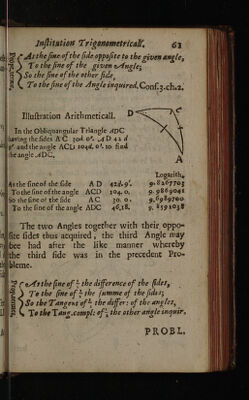 Institution Trigonometricall. 61
As the sine of the side opposite to the given angle,
To the sine of the given Angle;
So the sine of the other side,
To the sine of the Angle inquired. Conf.3.ch.2.
Proportion.
Illustration Arithmeticall.
D C
A
In the Obliquangular Triangle ADC
having the sides AC 30d. 0'. AD 42 d
9'. and the angle ACD 104d. 0'. to find
the angle ADC.
Logarith.
As the sine of the side A D 42d.9'. 9.8267703
To the sine of the angle ACD 104. 0. 9.9869041
So the sine of the side A C 30. 0. 9.6989700
To the sine of the angle ADC 46.18. 9.8591038
The two Angles together with their oppo-
site sides thus acquired, the third Angle may
bee had after the like manner whereby
the third side was in the precedent Pro-
bleme.
Proportion.
As the sine of ½ the difference of the sides,
To the sine of ½ the summe of the sides;
So the Tangent of ½ the differ: of the angles,
To the Tang.compl: of ½ the other angle inquir.
PROBL.